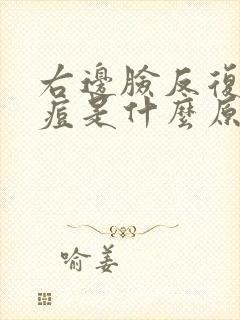 右邊臉反復
痘是什麼原
喻姜